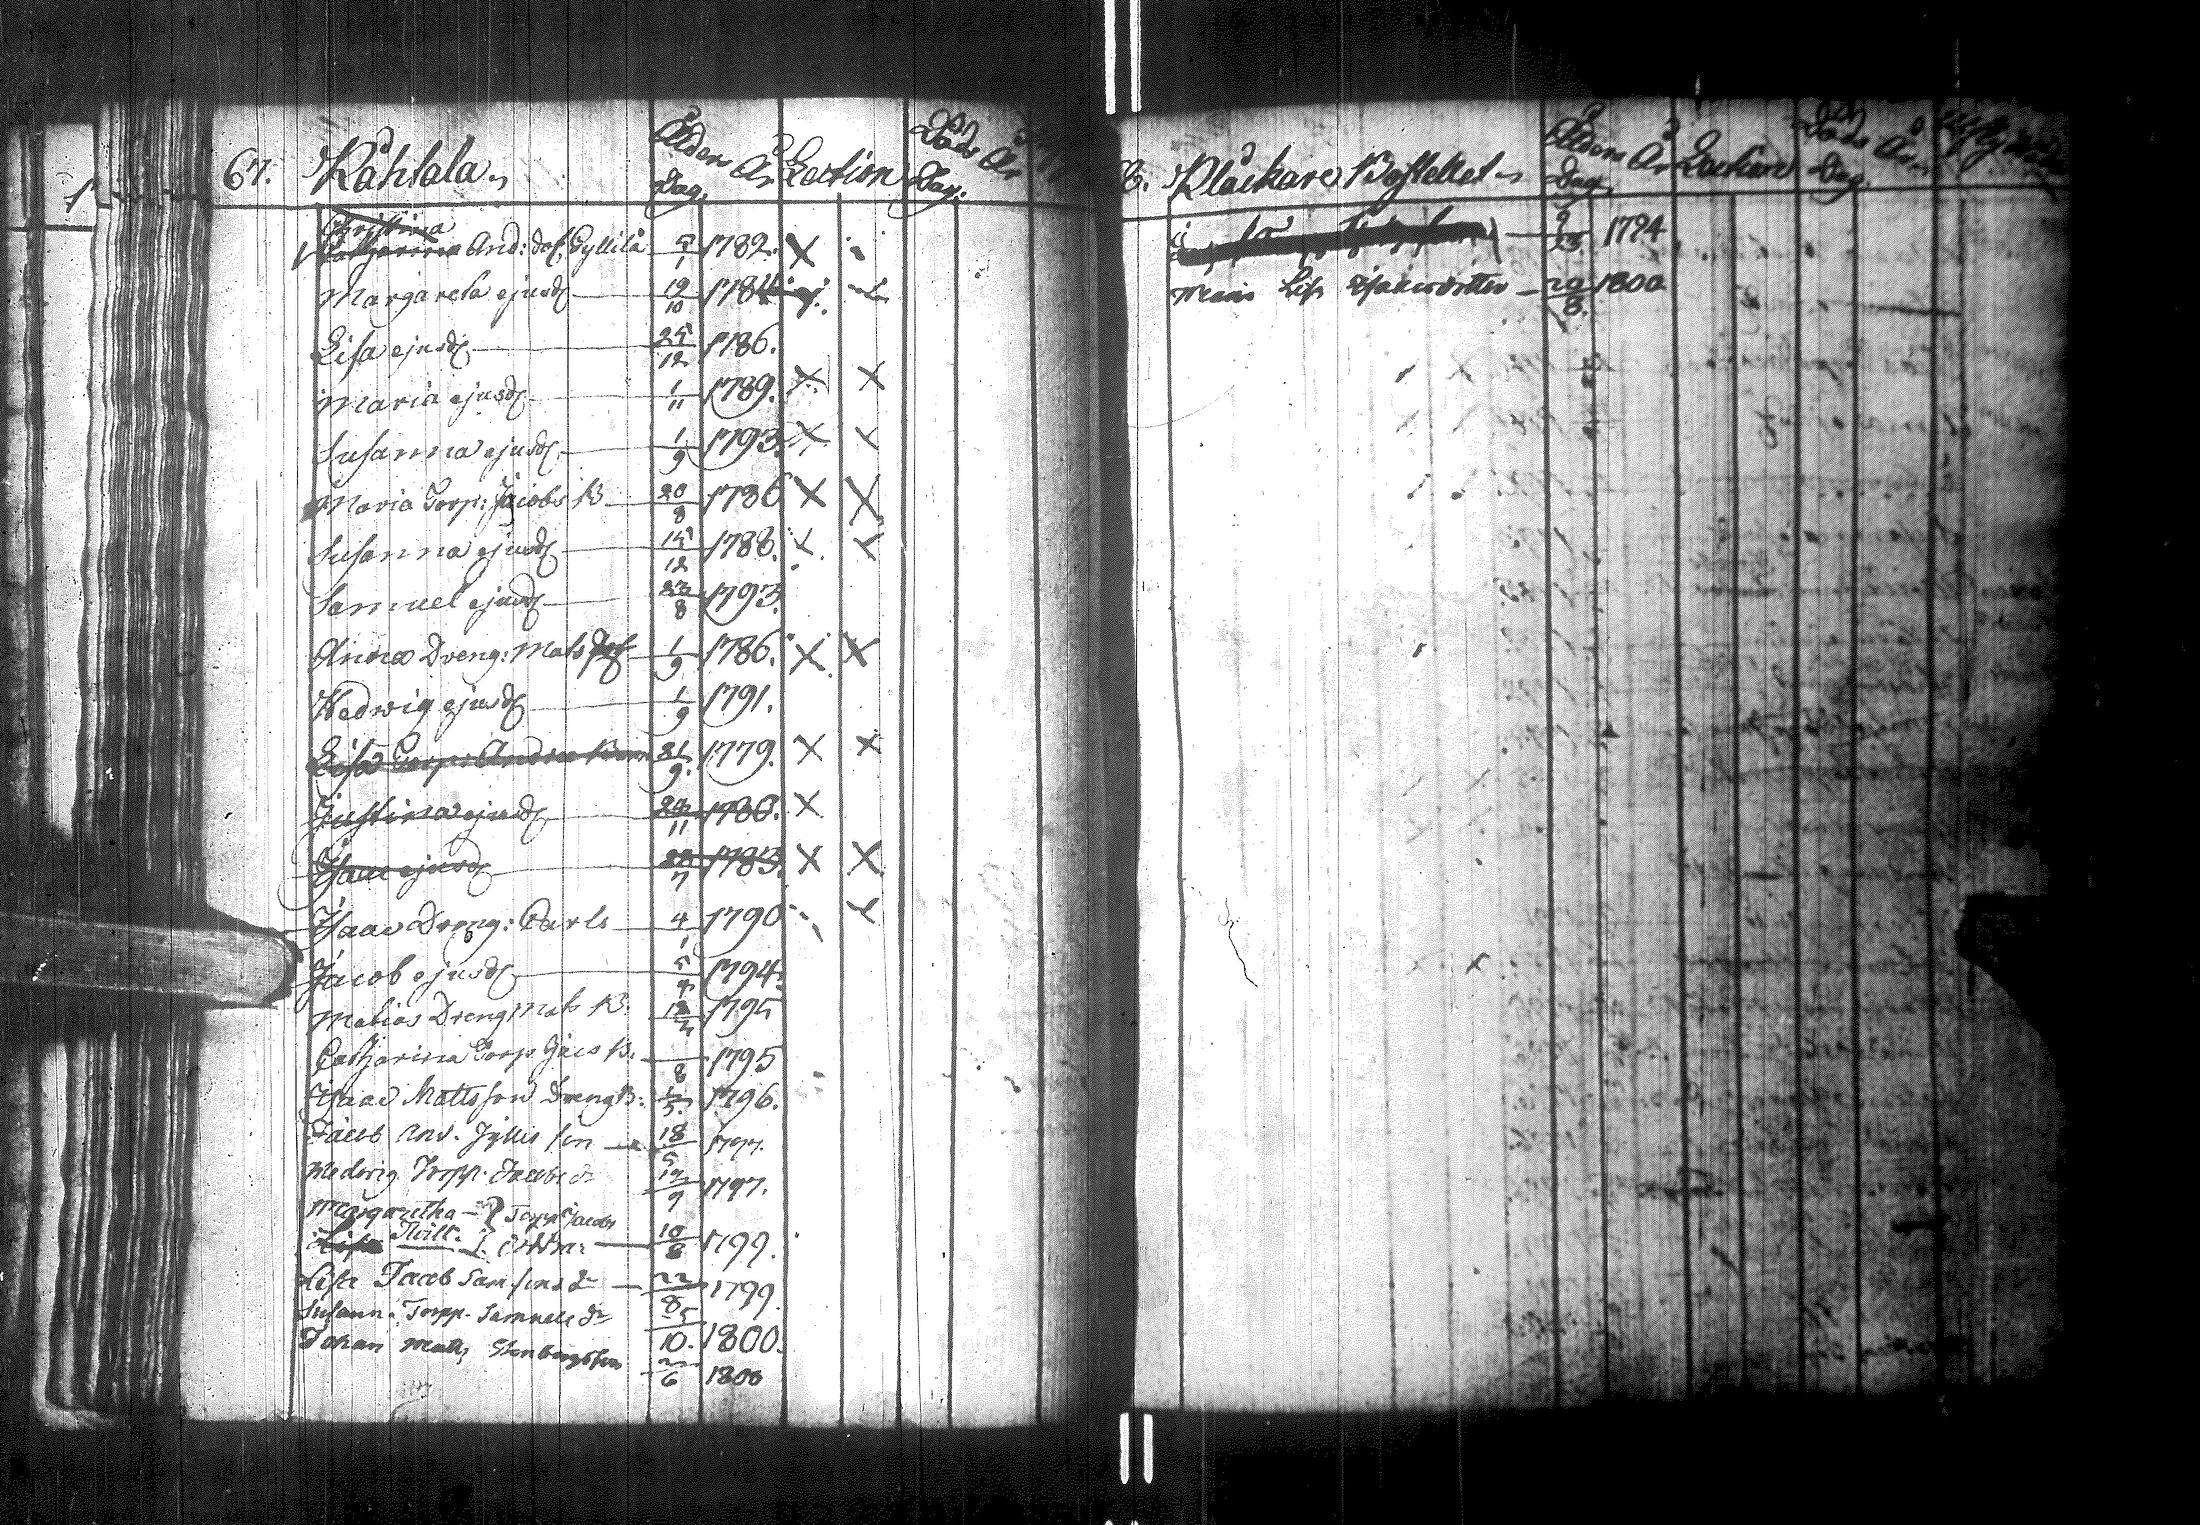 67. Råhtala. Ålders Dag. År Lection Döds Dag. År
Christina
Catharina And: dot, Gyllilä 5/1 1782.
Margareta ejusd 19/10 1784
Lisa ejusd 25/12 1786.
Maria ejusd 1/11 1789.
Susanna ejusd 1/9 1793.
Maria Torp: Jacobs B 20/8 1786
Susanna ejusd 15/12 1788.
Samuel ejusd 8 1793.
Anna Dreng: Mats dot 1/9 1786.
Hedwig ejusd 1/9 1791.
Lisa Torp: Andrs Barn 21/9. 1779.
Justina ejusd 24/11 1780.
Isaac ejusd 7 1783.
Isaac Dreng: Carls 4/1 1790
Jacob ejusd 1794.
Matias Dreng Mats B. 1795
Catharina Torp Jacs B. 8 1795
Isaac Mattsson Dreng B: 1796.
Jacob And. Jyllis son 18/5 1797.
Hedwig Torpp. Jacobs dr 9 1797.
Margaretha Torpr Jacobs
Lisa Twill. 10/8 1799.
Lisa Jacob Samsons dr 22/8 1799.
Susann. Torpp. Samuels dr 5/10. 1800.
Johan Matts Stenbergs son 6 1800
Klåckare Bostellet. Ålders Dag. År Lection Döds Dag. År.
9 1794
Maria Lis. Isaacs dotter 20/8. 1800